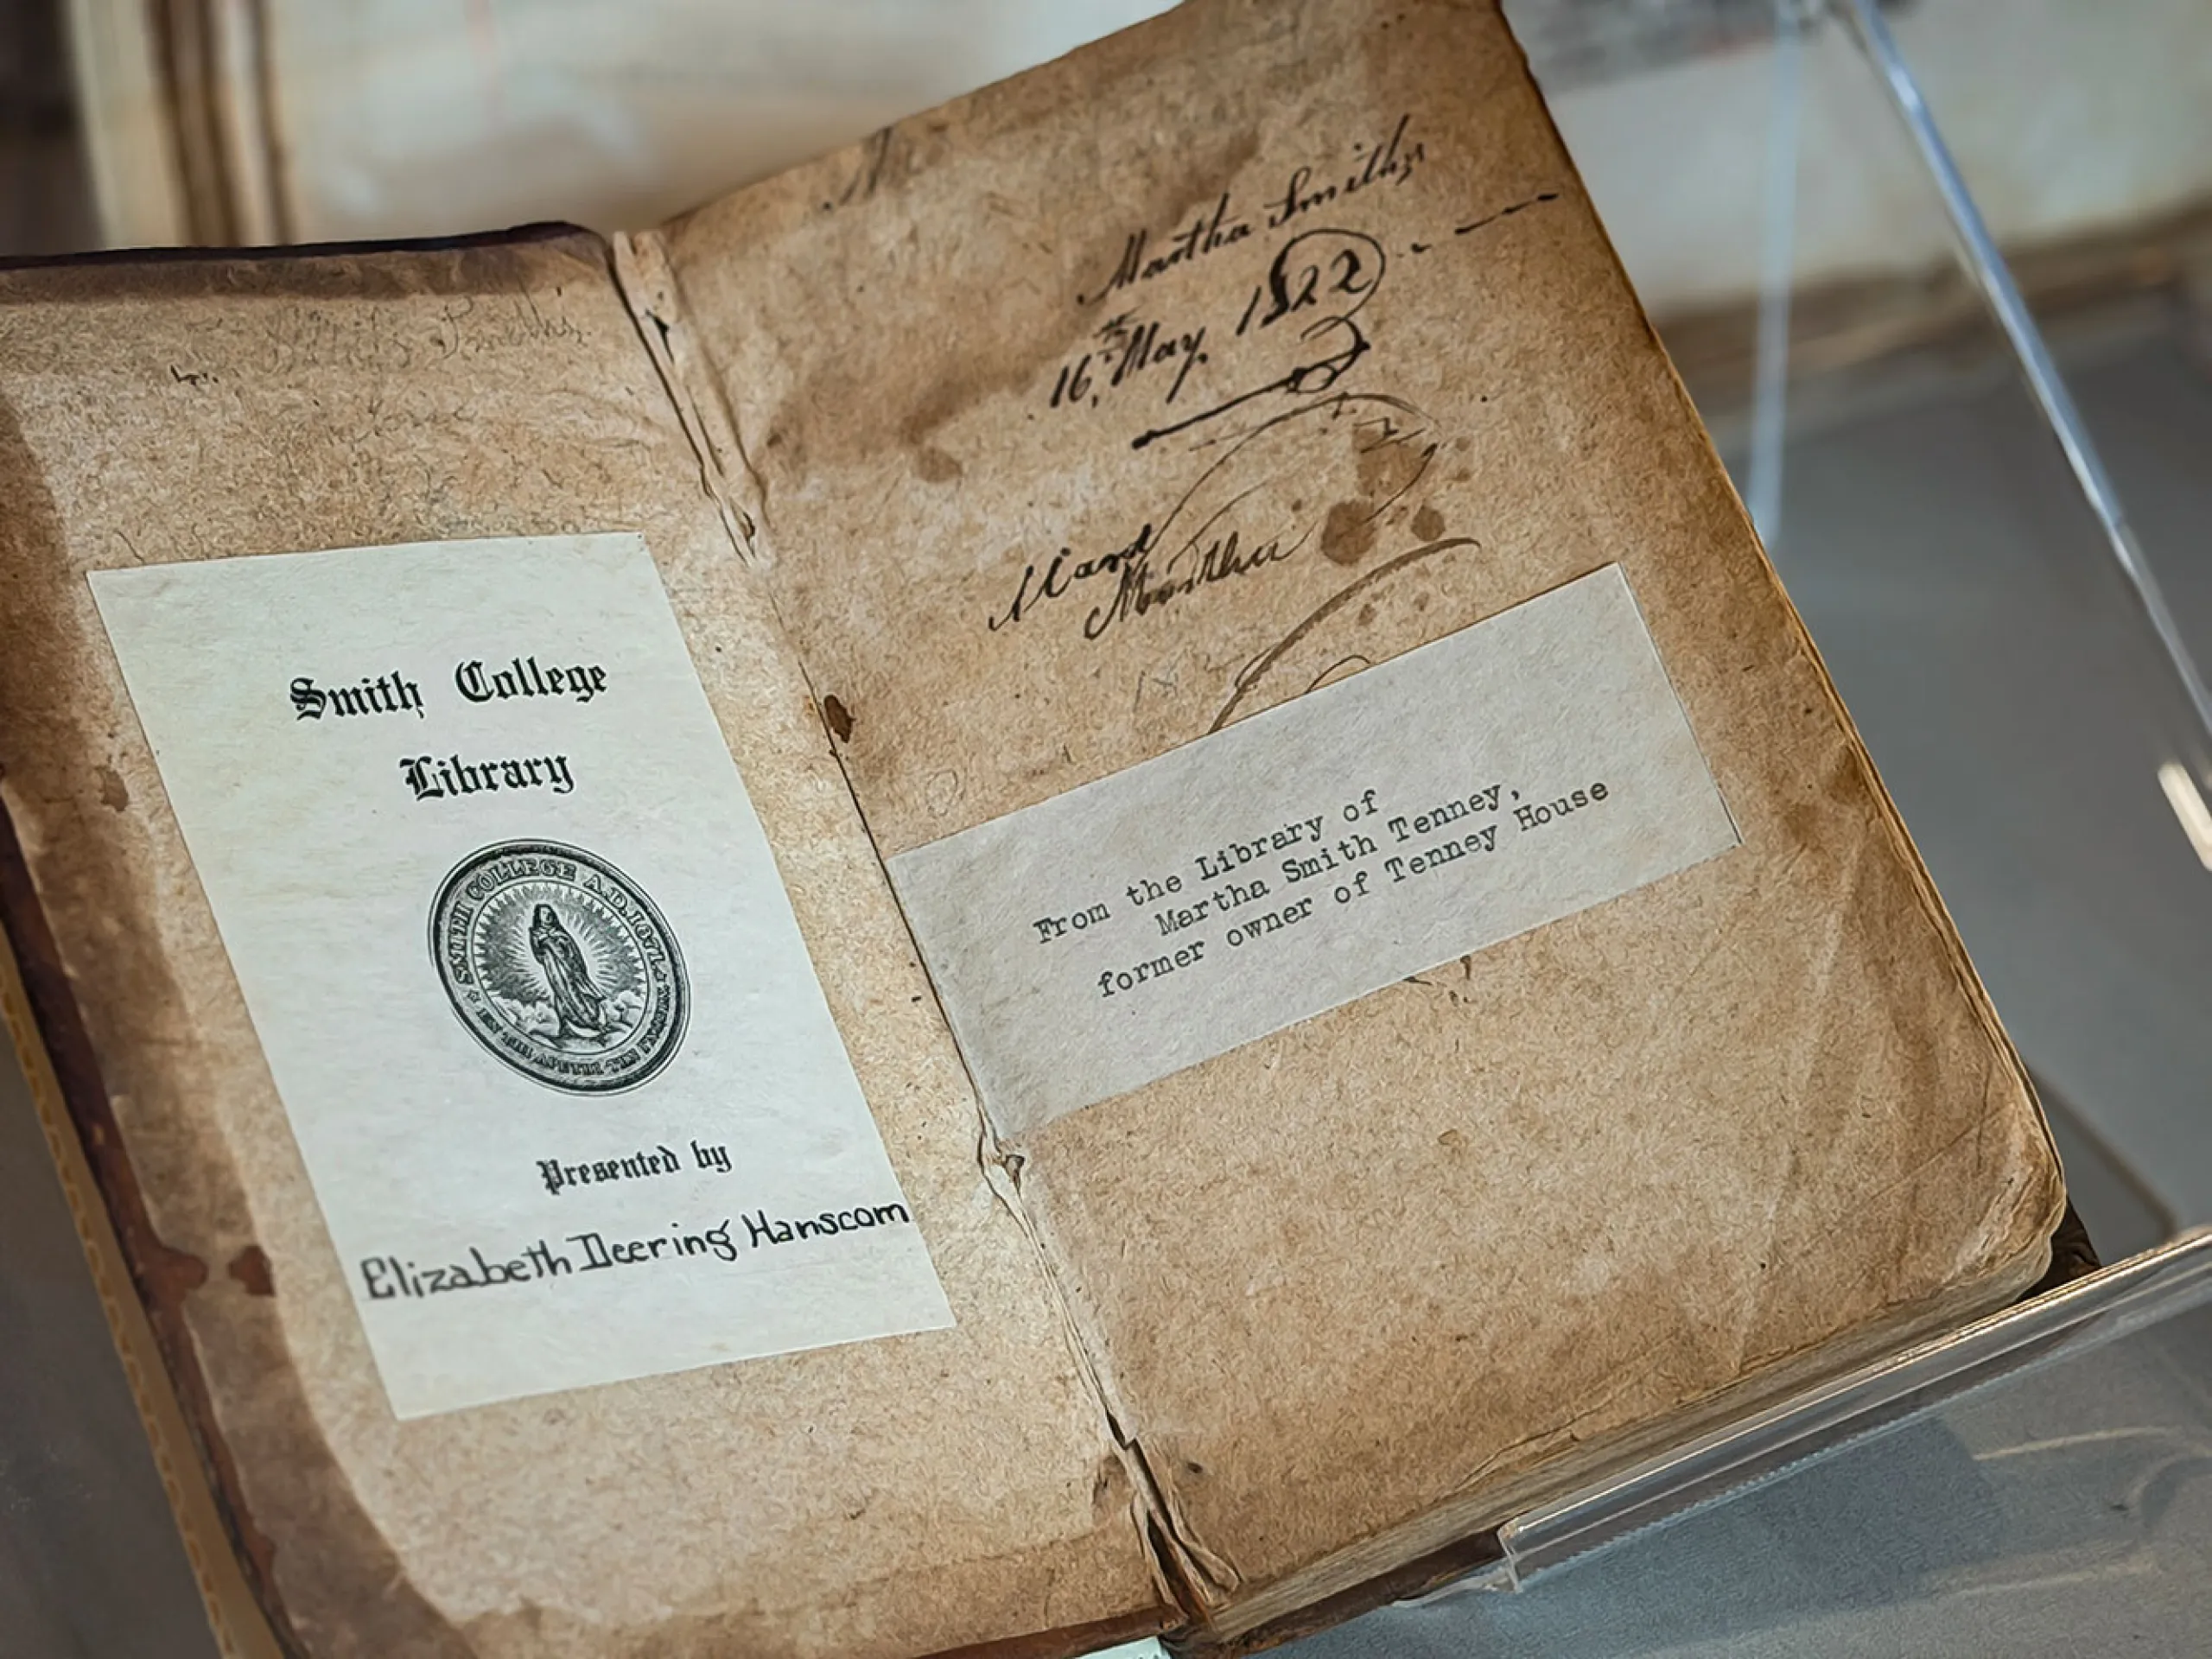 Smith College
Library
SMITH COLLEGE A.D. 1871.
Presented by
Elizabeth Deering Hanscom
Martha Smith's
16th May, 1822
Martha
From the Library of
Martha Smith Tenney,
former owner of Tenney House